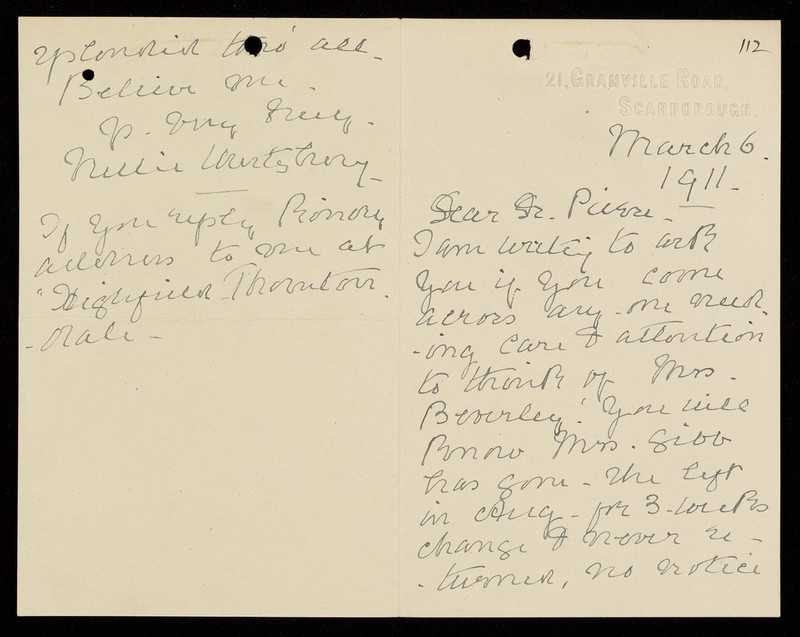 112
21, GRANVILLE ROAD,
SCARBOROUGH.
March 6.
1911.
Dear Dr. Pierce. -
I am writing to ask
you if you come
across any-one need-
-ing care & attention
to think of Mrs.
Beverley. You will
know Mrs. Gibb
has gone - She left
in Aug - for 3-weeks
change & never re-
-turned, no notice
splendid thro' all -
Believe me -
Yr. Very truly -
Nellie
If you reply kindly
address to me at
"Highfield Thornton
-Dale -